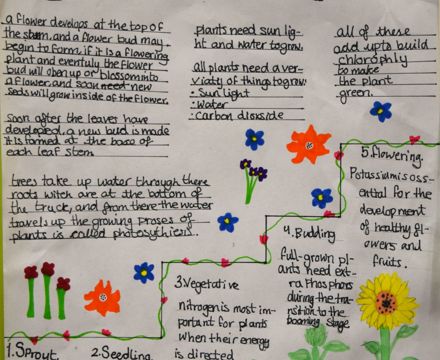 a flower develops at the top of
the stem, and a flower bud may
begin to form. if it is a flowering
plant and eventfuly the flower
bud will open up or blossom into
a flower, and soon new
seds will grow in side of the flower.
soon after the leaves have
developed, a new bud is made
it is fomed at the base of
each leaf stem
trees take up water through there
roots witch are at the bottom of
the truck, and from there the water
travels up the growing proses of
plants is called photosythiers.
plants need sun lig-
ht and water to grow.
all plants need a ver-
viaty of things to grow:
• Sun light
• Water
• Carbon dioxside
all of these
add up to build
chlorophly
to make
the plant
green.
1. Sprout
2. Seedling
3. Vegetative
nitrogen is most im-
portant for plants
when their energy
is directed
4. Budding
full-grown pl-
ants need ext-
ra phosphors
during the tra-
nsition to the
booming stage
5. flowering
Potassium is oss-
ential for the
development
of healthy fl-
owers and
fruits.